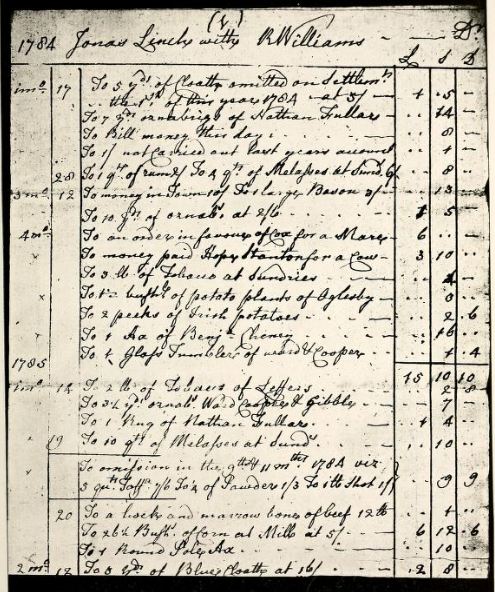 1784 Jonas Linch with R Williams — — Dr
£ S D
1mo 17 To 5 yds of Cloath omitted on Settlemt
the 1st of this year 1784 - at 5/ — 1 .5 -
To 7 yds ornabrigs of Nathan Fullars — 14 —
To Bill money this day: 8 —
To 1/ not Carried out last years account 1 —
28 To 1 qt of rum & To 4 qts of Melasses at Sund. 8 -
3mo 12 To money in Town 10/ To 1 large Bason 3/ — 13 —
To 10 yds of ornabs at 2/6 1 5 —
4mo To an order in favour of Cox for a Mare — 6 .. —
× To money paid Hope Stanton for a Cow — 3 10 —
To 3 lb of Tobacco at Sundries
× To bushl of potato plants of Oglesby
× To 2 peeks of Irish potatoes 2 .6
× To 1 Ax of Benjn Cheney 16
× To Glass Tumblers of ward & Cooper 1 4
1785 15 10 10
1mo 14 To 2 lb of Tobacco of Leffers 2 8
To yds ornabs Ward Cooper & Gibble 7 -
To 1 Rug of Nathan Fullars 1 4
19 To 10 qts of Melasses at Sunds 10
To omission in the 9th & 11 mths 1784 viz
3 7/6 To of Powder 1/3 To 1lb Shot 1/ 9 9
20 To a hock and marrow bone of beef 12th 1 -
To 26½ Bush. of Corn at Mill at 5/ 6 12 .6
To 1 Round Pole Ax 10
2mo 12 To 3 yds of Blue Cloath at 16/ 2 8